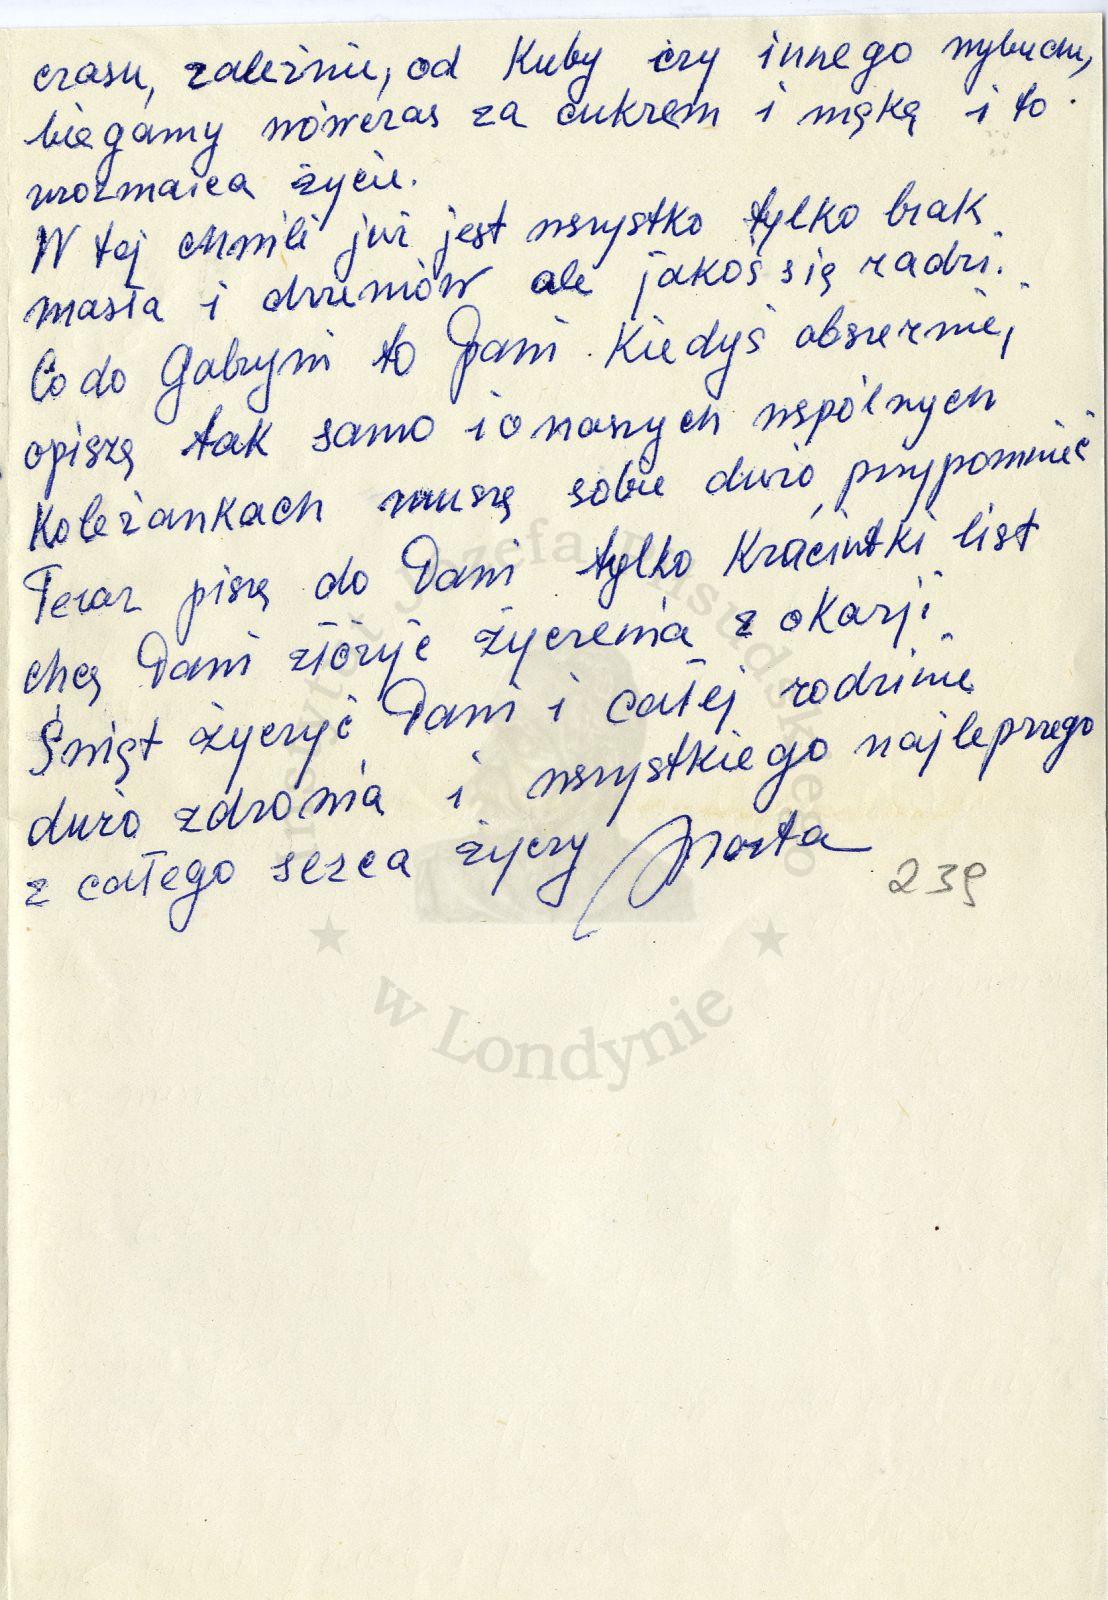 czasu, zależnie, od Kuby czy innego wybuchu,
biegamy wówczas za cukrem i mąką i to
urozmaica życie.
W tej chwili już jest wszystko tylko brak
masła i dżemów ale jakoś się radzi.
Co do Gabryni to Pani Kiedyś obszerniej
opiszę tak samo i o naszych wspólnych
Koleżankach muszę sobie dużo przypomnieć
Teraz piszę do Pani tylko Kráciutki list
chcę Pani złożyć życzenia z okazji
Świąt życzyć Pani i całej rodzinie
dużo zdrowia i wszystkiego najlepszego
z całego serca życzy
239
Instytut Józefa Piłsudskiego
w Londynie